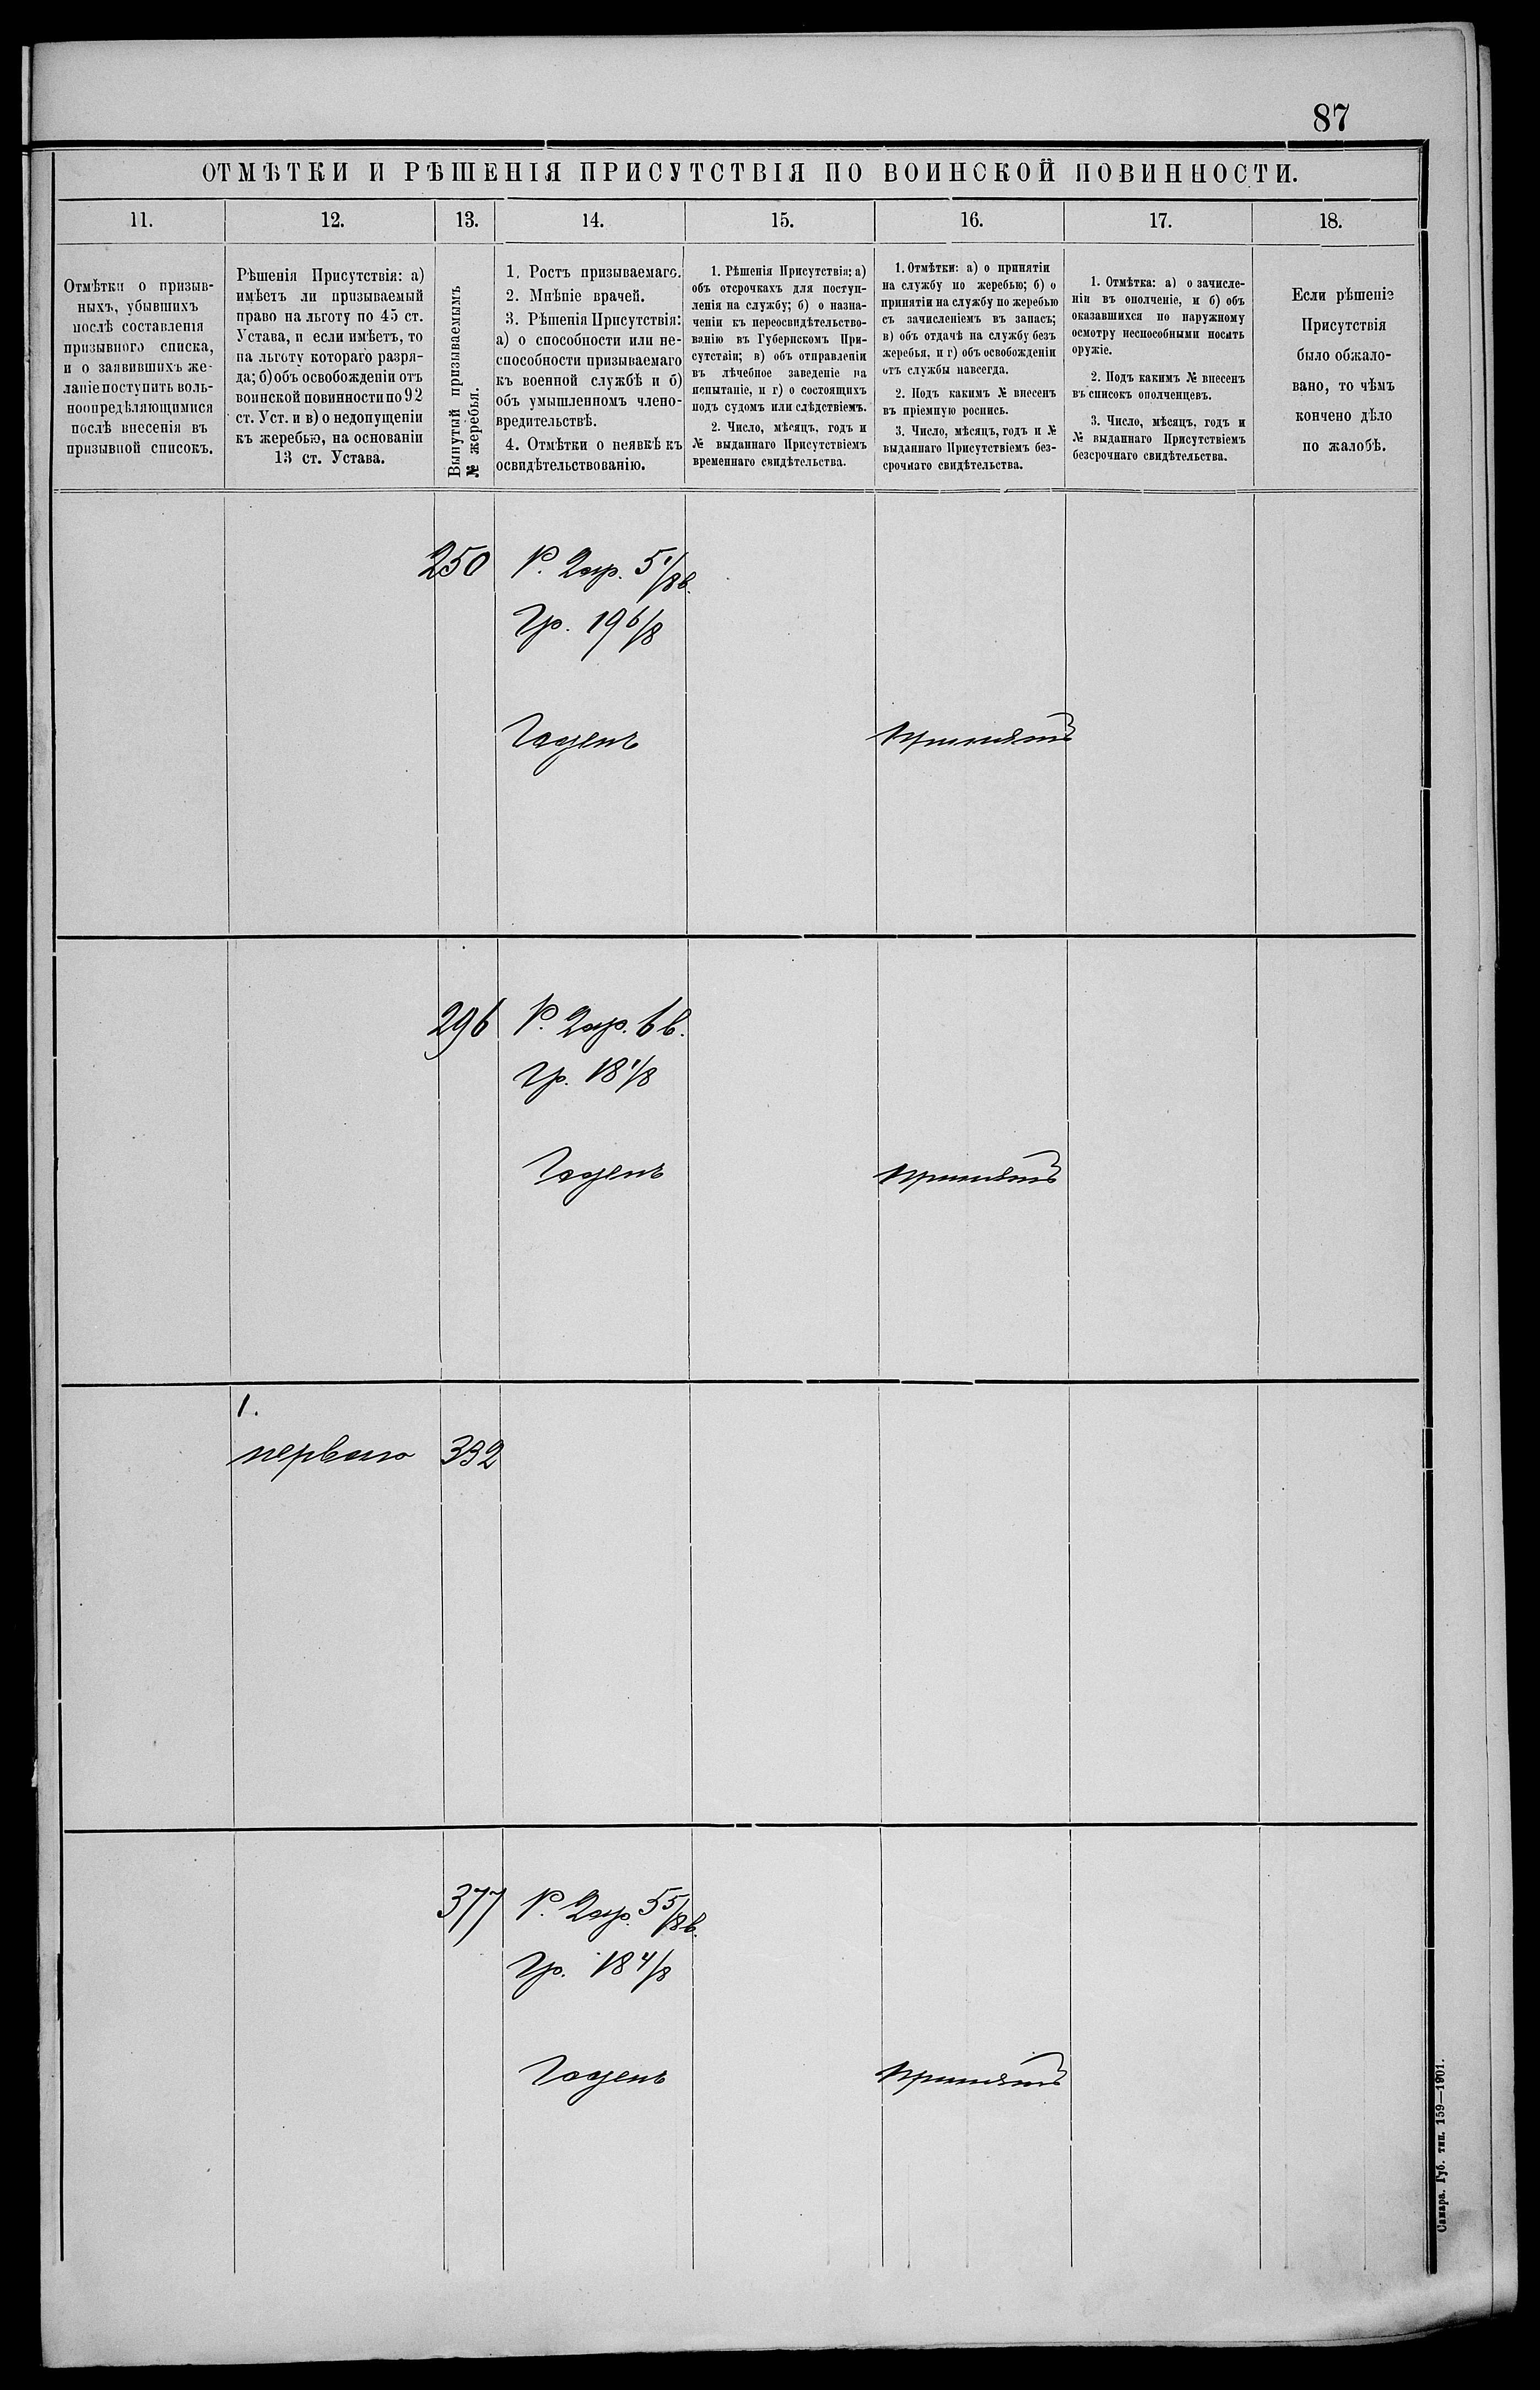 87
ОТМѢТКИ И РѢШЕНІЯ ПРИСУТСТВІЯ ПО ВОИНСКОЙ ПОВИННОСТИ.
11.
12.
13.
14.
15.
16.
17.
18.
Отмѣтки о призыв-
ныхъ, убывшихъ
послѣ составленія
призывного списка,
и о заявившихъ же-
ланіе поступить воль-
ноопредѣляющимися
послѣ внесенія въ
призывной списокъ.
Рѣшенія Присутствія: а)
имѣетъ ли призываемый
право на льготу по 45 ст.
Устава, и если имѣетъ, то
на льготу котораго разря-
да; б) объ освобожденіи отъ
воинской повинности по 92
ст. Уст. и в) о недопущеніи
къ жеребью, на основаніи
13 ст. Устава.
Вынутый призываемымъ
№ жеребья.
1. Ростъ призываемаго.
2. Мнѣніе врачей.
3. Рѣшенія Присутствія:
а) о способности или не-
способности призываемаго
къ военной службѣ и б)
объ умышленномъ члено-
вредительствѣ.
4. Отмѣтки о неявкѣ къ
освидѣтельствованію.
1. Рѣшенія Присутствія: а)
объ отсрочкахъ для поступ-
ленія на службу; б) о назна-
ченіи къ переосвидѣтельство-
ванію въ Губернскомъ При-
сутствіи; в) объ отправленіи
въ лѣчебное заведеніе на
испытаніе, и г) о состоящихъ
подъ судомъ или слѣдствіемъ.
2. Число, мѣсяцъ, годъ и
№ выданнаго Присутствіемъ
временнаго свидѣтельства.
1. Отмѣтки: а) о принятіи
на службу по жеребью; б) о
принятіи на службу по жеребью
съ зачисленіемъ въ запасъ;
в) объ отдачѣ на службу безъ
жеребья, и г) объ освобожденіи
отъ службы навсегда.
2. Подъ какимъ № внесенъ
въ пріемную роспись.
3. Число, мѣсяцъ, годъ и №
выданнаго Присутствіемъ без-
срочнаго свидѣтельства.
1. Отмѣтка: а) о зачисле-
ніи въ ополченіе, и б) объ
оказавшихся по наружному
осмотру неспособными носить
оружіе.
2. Подъ какимъ № внесенъ
въ списокъ ополченцевъ.
3. Число, мѣсяцъ, годъ и
№ выданнаго Присутствіемъ
безсрочнаго свидѣтельства.
Если рѣшеніе
Присутствія
было обжало-
вано, то чѣмъ
кончено дѣло
по жалобѣ.
250 Р. 2 ар. 5 1/8 в.
Гр. 19 6/8
Годенъ
принятъ
296 Р. 2 ар. 6 в.
Гр. 18 1/8
Годенъ
принятъ
1.
перваго 332
377 Р. 2 ар. 5 5/8 в.
Гр. 18 4/8
Годенъ
принятъ
Самара. Губ. тип. 159—1901.